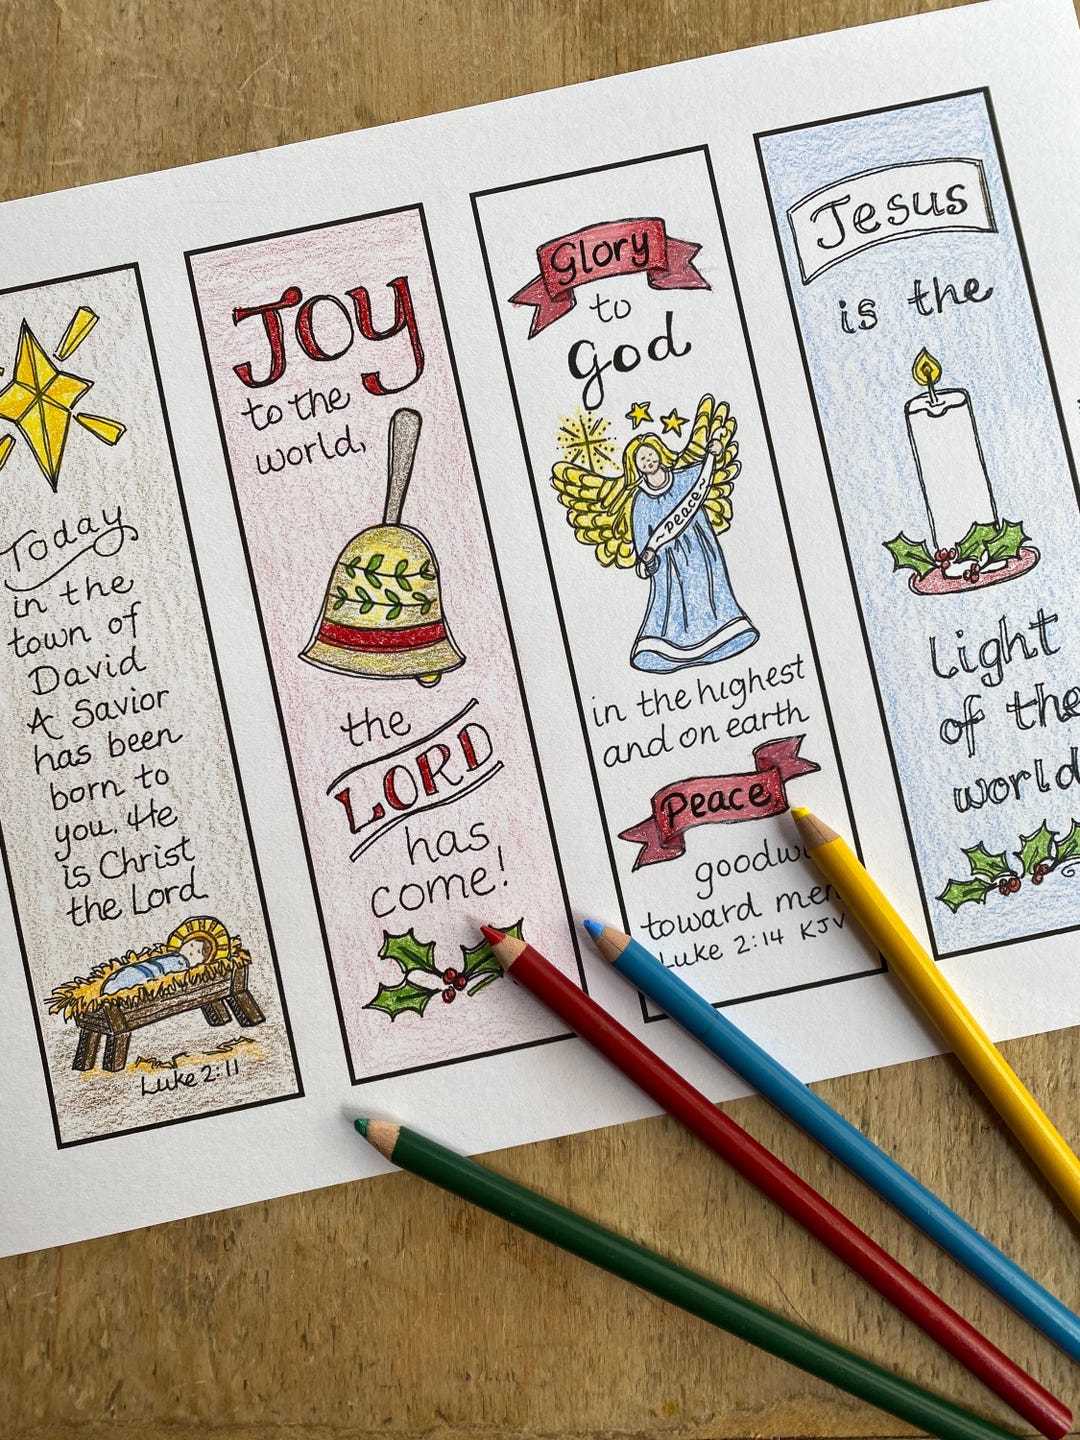 Today
in the
town of
David
A Savior
has been
born to
you. He
is Christ
the Lord
Luke 2:11
Joy
to the
world,
the
LORD
has
come!
Glory
to
God
~peace~
in the highest
and on earth
Peace
goodwi
toward men
Luke 2:14 KJV
Jesus
is the
Light
of the
world